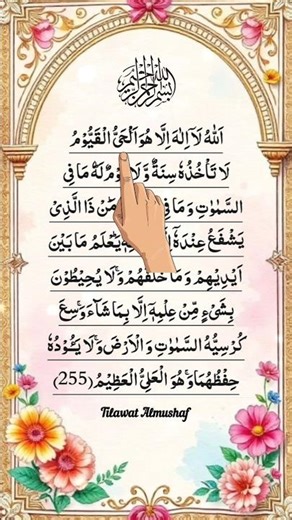 بسم الله الرحمن الرحيم
اَللّٰهُ لَآ اِلٰهَ اِلَّا هُوَ اَلْحَیُّ الْقَیُّوْمُ
لَا تَاْخُذُهٗ سِنَةٌ وَّلَا نَوْمٌ لَهٗ مَا فِی
السَّمٰوٰتِ وَمَا فِی مَنْ ذَا الَّذِیْ
یَشْفَعُ عِنْدَهٗٓ یَعْلَمُ مَا بَیْنَ
اَیْدِیْهِمْ وَمَا خَلْفَهُمْ وَلَا یُحِیْطُوْنَ
بِشَیْءٍ مِّنْ عِلْمِهٖٓ اِلَّا بِمَا شَآءَ وَسِعَ
كُرْسِیُّهُ السَّمٰوٰتِ وَالْاَرْضَ وَلَا یَـُٔوْدُهٗ
حِفْظُهُمَا وَهُوَ الْعَلِیُّ الْعَظِیْمُ (255)
Tilawat Almushaf